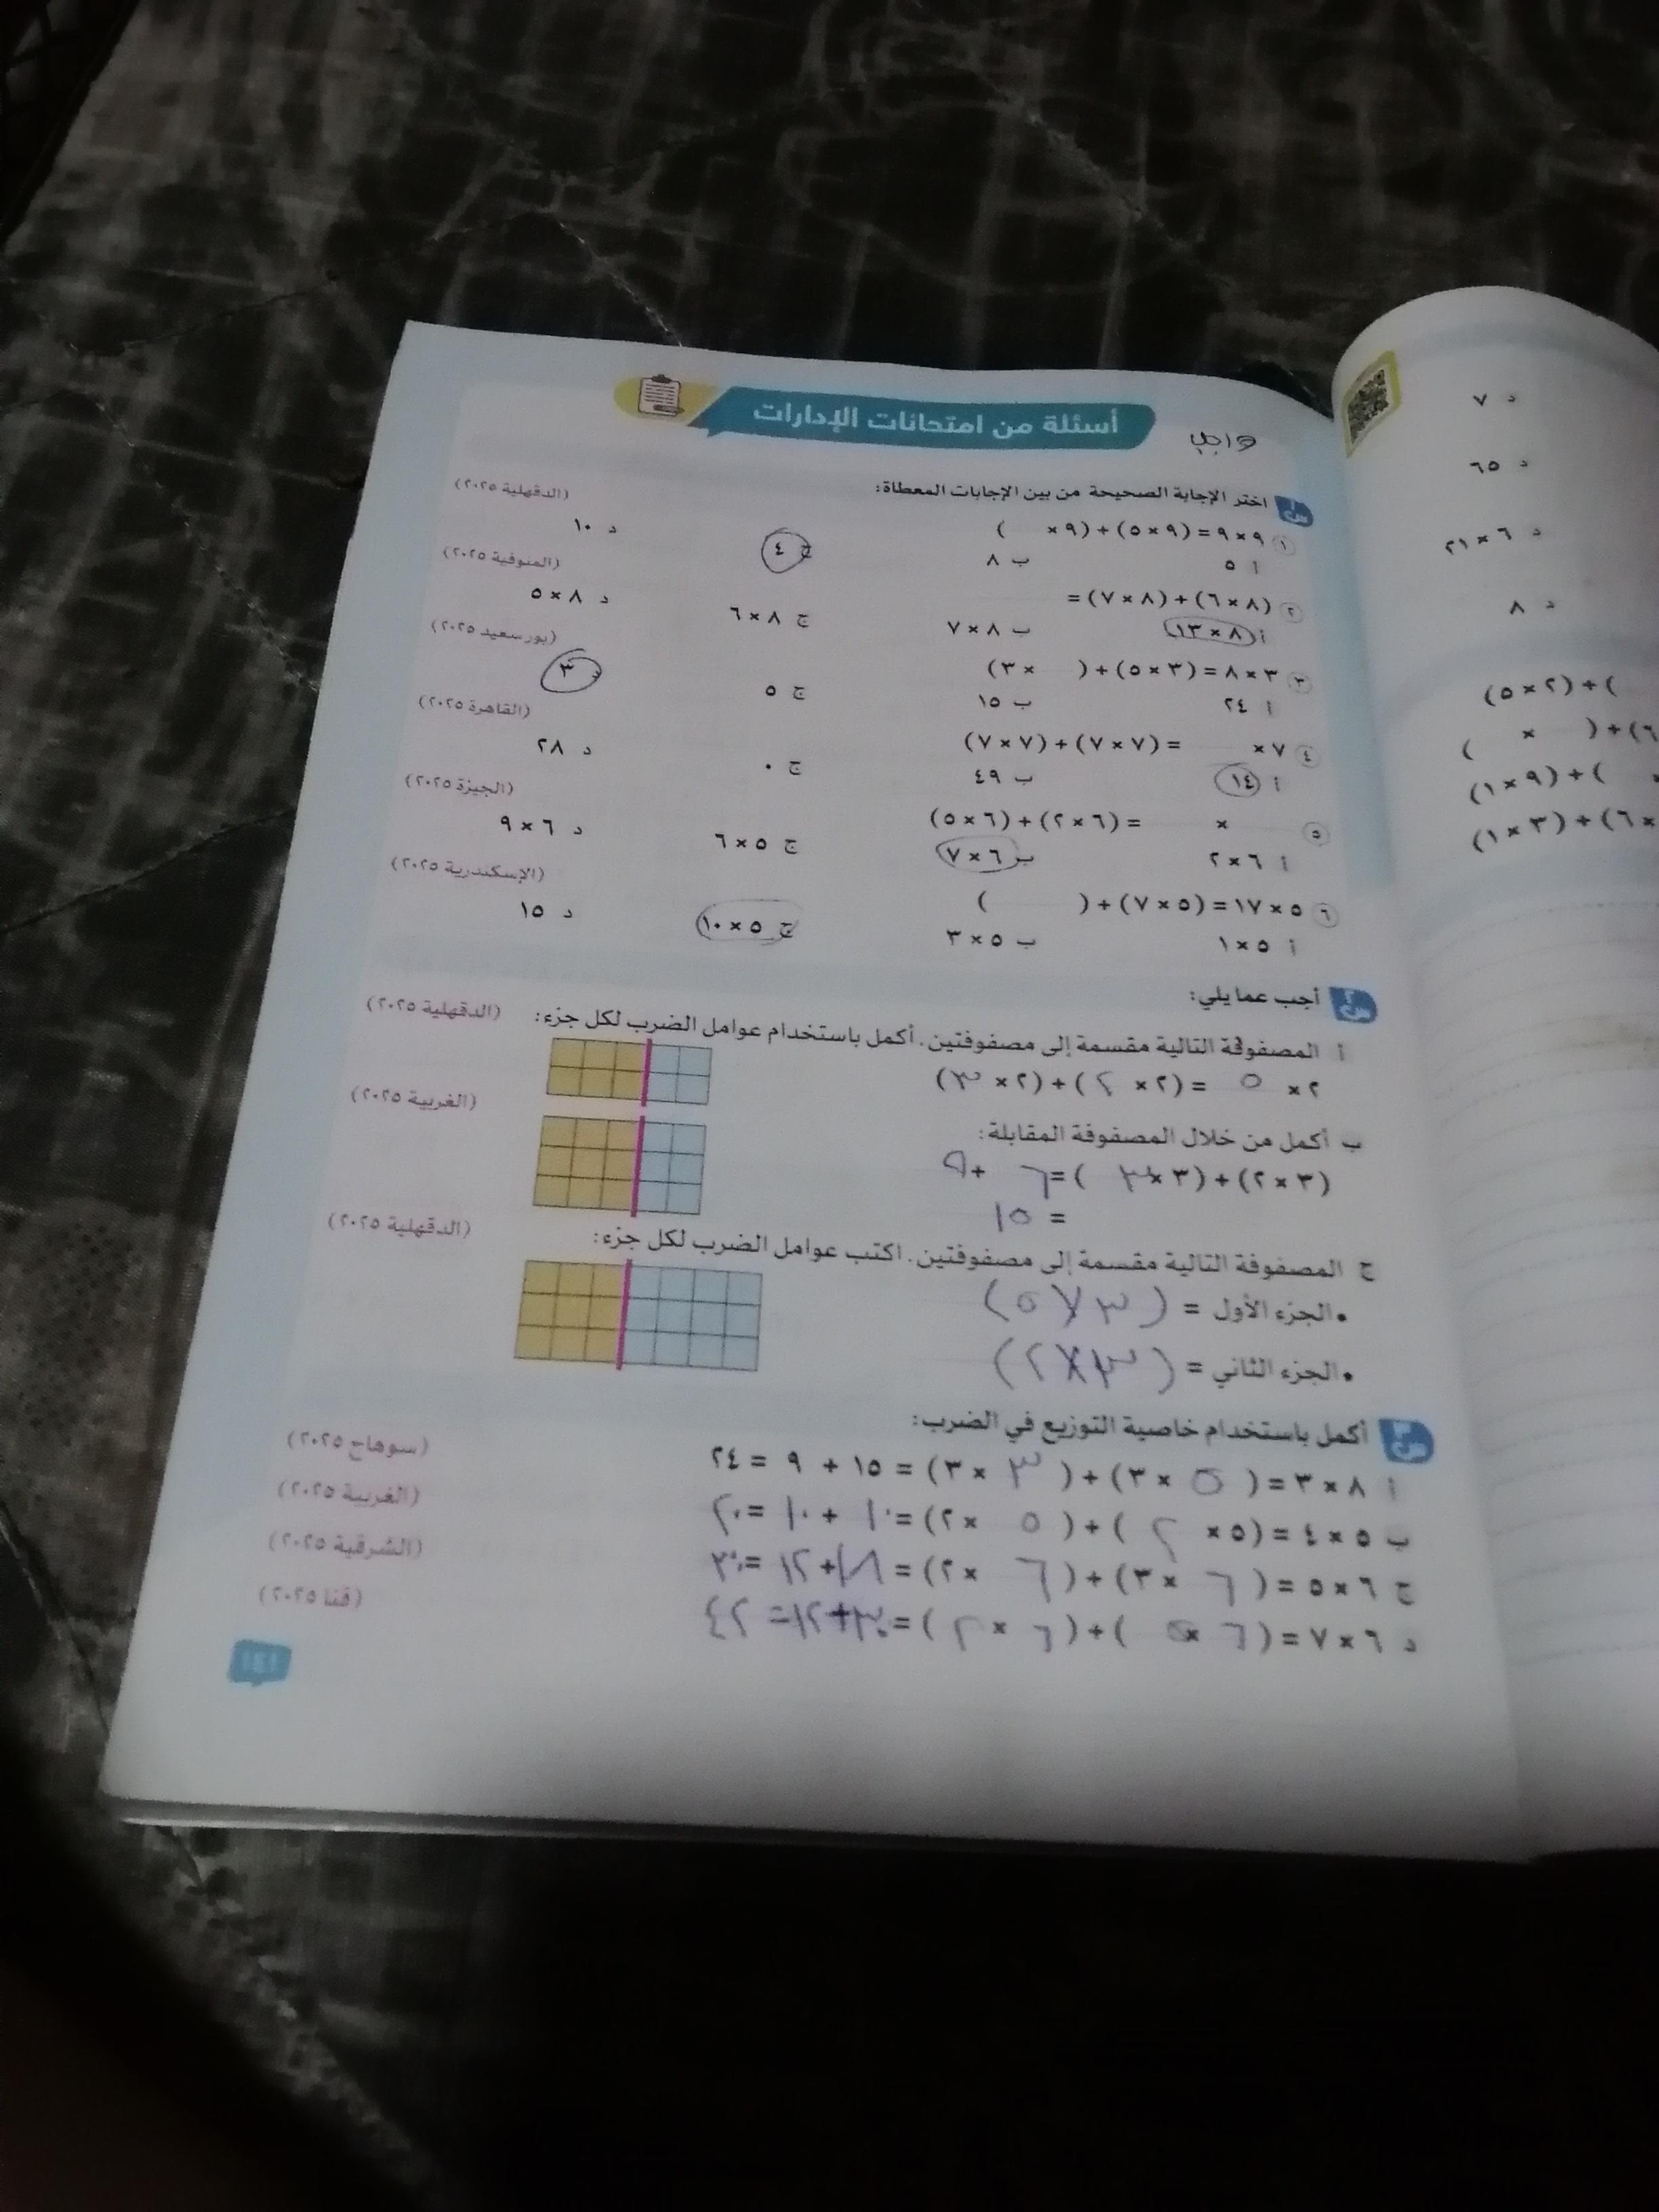 أسئلة من امتحانات الإدارات
واجب
س١ اختر الإجابة الصحيحة من بين الإجابات المعطاة:
١ ٩ × ٩ = (٩ × ٥) + (٩ × ) (الدقهلية ٢٠٢٥)
أ ٥ ب ٨ ج ٤ د ١٠
٢ (٨ × ٦) + (٨ × ٧) = (المنوفية ٢٠٢٥)
أ ٨ × ١٣ ب ٨ × ٧ ج ٨ × ٦ د ٨ × ٥
٣ ٣ × ٨ = (٣ × ٥) + ( × ٣) (بورسعيد ٢٠٢٥)
أ ٢٤ ب ١٥ ج ٥ د ٣
٤ ٧ × = (٧ × ٧) + (٧ × ٧) (القاهرة ٢٠٢٥)
أ ١٤ ب ٤٩ ج ٠ د ٢٨
٥ × = (٦ × ٢) + (٦ × ٥) (الجيزة ٢٠٢٥)
أ ٦ × ٢ ب ٦ × ٧ ج ٥ × ٦ د ٦ × ٩
٦ ٥ × ١٧ = (٥ × ٧) + ( ) (الإسكندرية ٢٠٢٥)
أ ٥ × ١ ب ٥ × ٣ ج ٥ × ١٠ د ١٥
س٢ أجب عما يلي:
أ المصفوفة التالية مقسمة إلى مصفوفتين. أكمل باستخدام عوامل الضرب لكل جزء: (الدقهلية ٢٠٢٥)
٢ × ٥ = (٢ × ٢) + (٢ × ٣)
ب أكمل من خلال المصفوفة المقابلة: (الغربية ٢٠٢٥)
(٣ × ٢) + (٣ × ٣) = ٦ + ٩
= ١٥
ج المصفوفة التالية مقسمة إلى مصفوفتين. اكتب عوامل الضرب لكل جزء: (الدقهلية ٢٠٢٥)
• الجزء الأول = (٣ × ٥)
• الجزء الثاني = (٣ × ٢)
س٣ أكمل باستخدام خاصية التوزيع في الضرب:
أ ٨ × ٣ = (٥ × ٣) + (٣ × ٣) = ١٥ + ٩ = ٢٤ (سوهاج ٢٠٢٥)
ب ٥ × ٤ = (٥ × ٢) + (٥ × ٢) = ١٠ + ١٠ = ٢٠ (الغربية ٢٠٢٥)
ج ٦ × ٥ = (٦ × ٣) + (٦ × ٢) = ١٨ + ١٢ = ٣٠ (الشرقية ٢٠٢٥)
د ٦ × ٧ = (٦ × ٥) + (٦ × ٢) = ٣٠ + ١٢ = ٤٢ (قنا ٢٠٢٥)
١٤١
د ٧
د ٦٥
د ٦ × ٢١
د ٨
) + (٢ × ٥)
) + ( × )
) + (٩ × ١)
) + (٣ × ١)